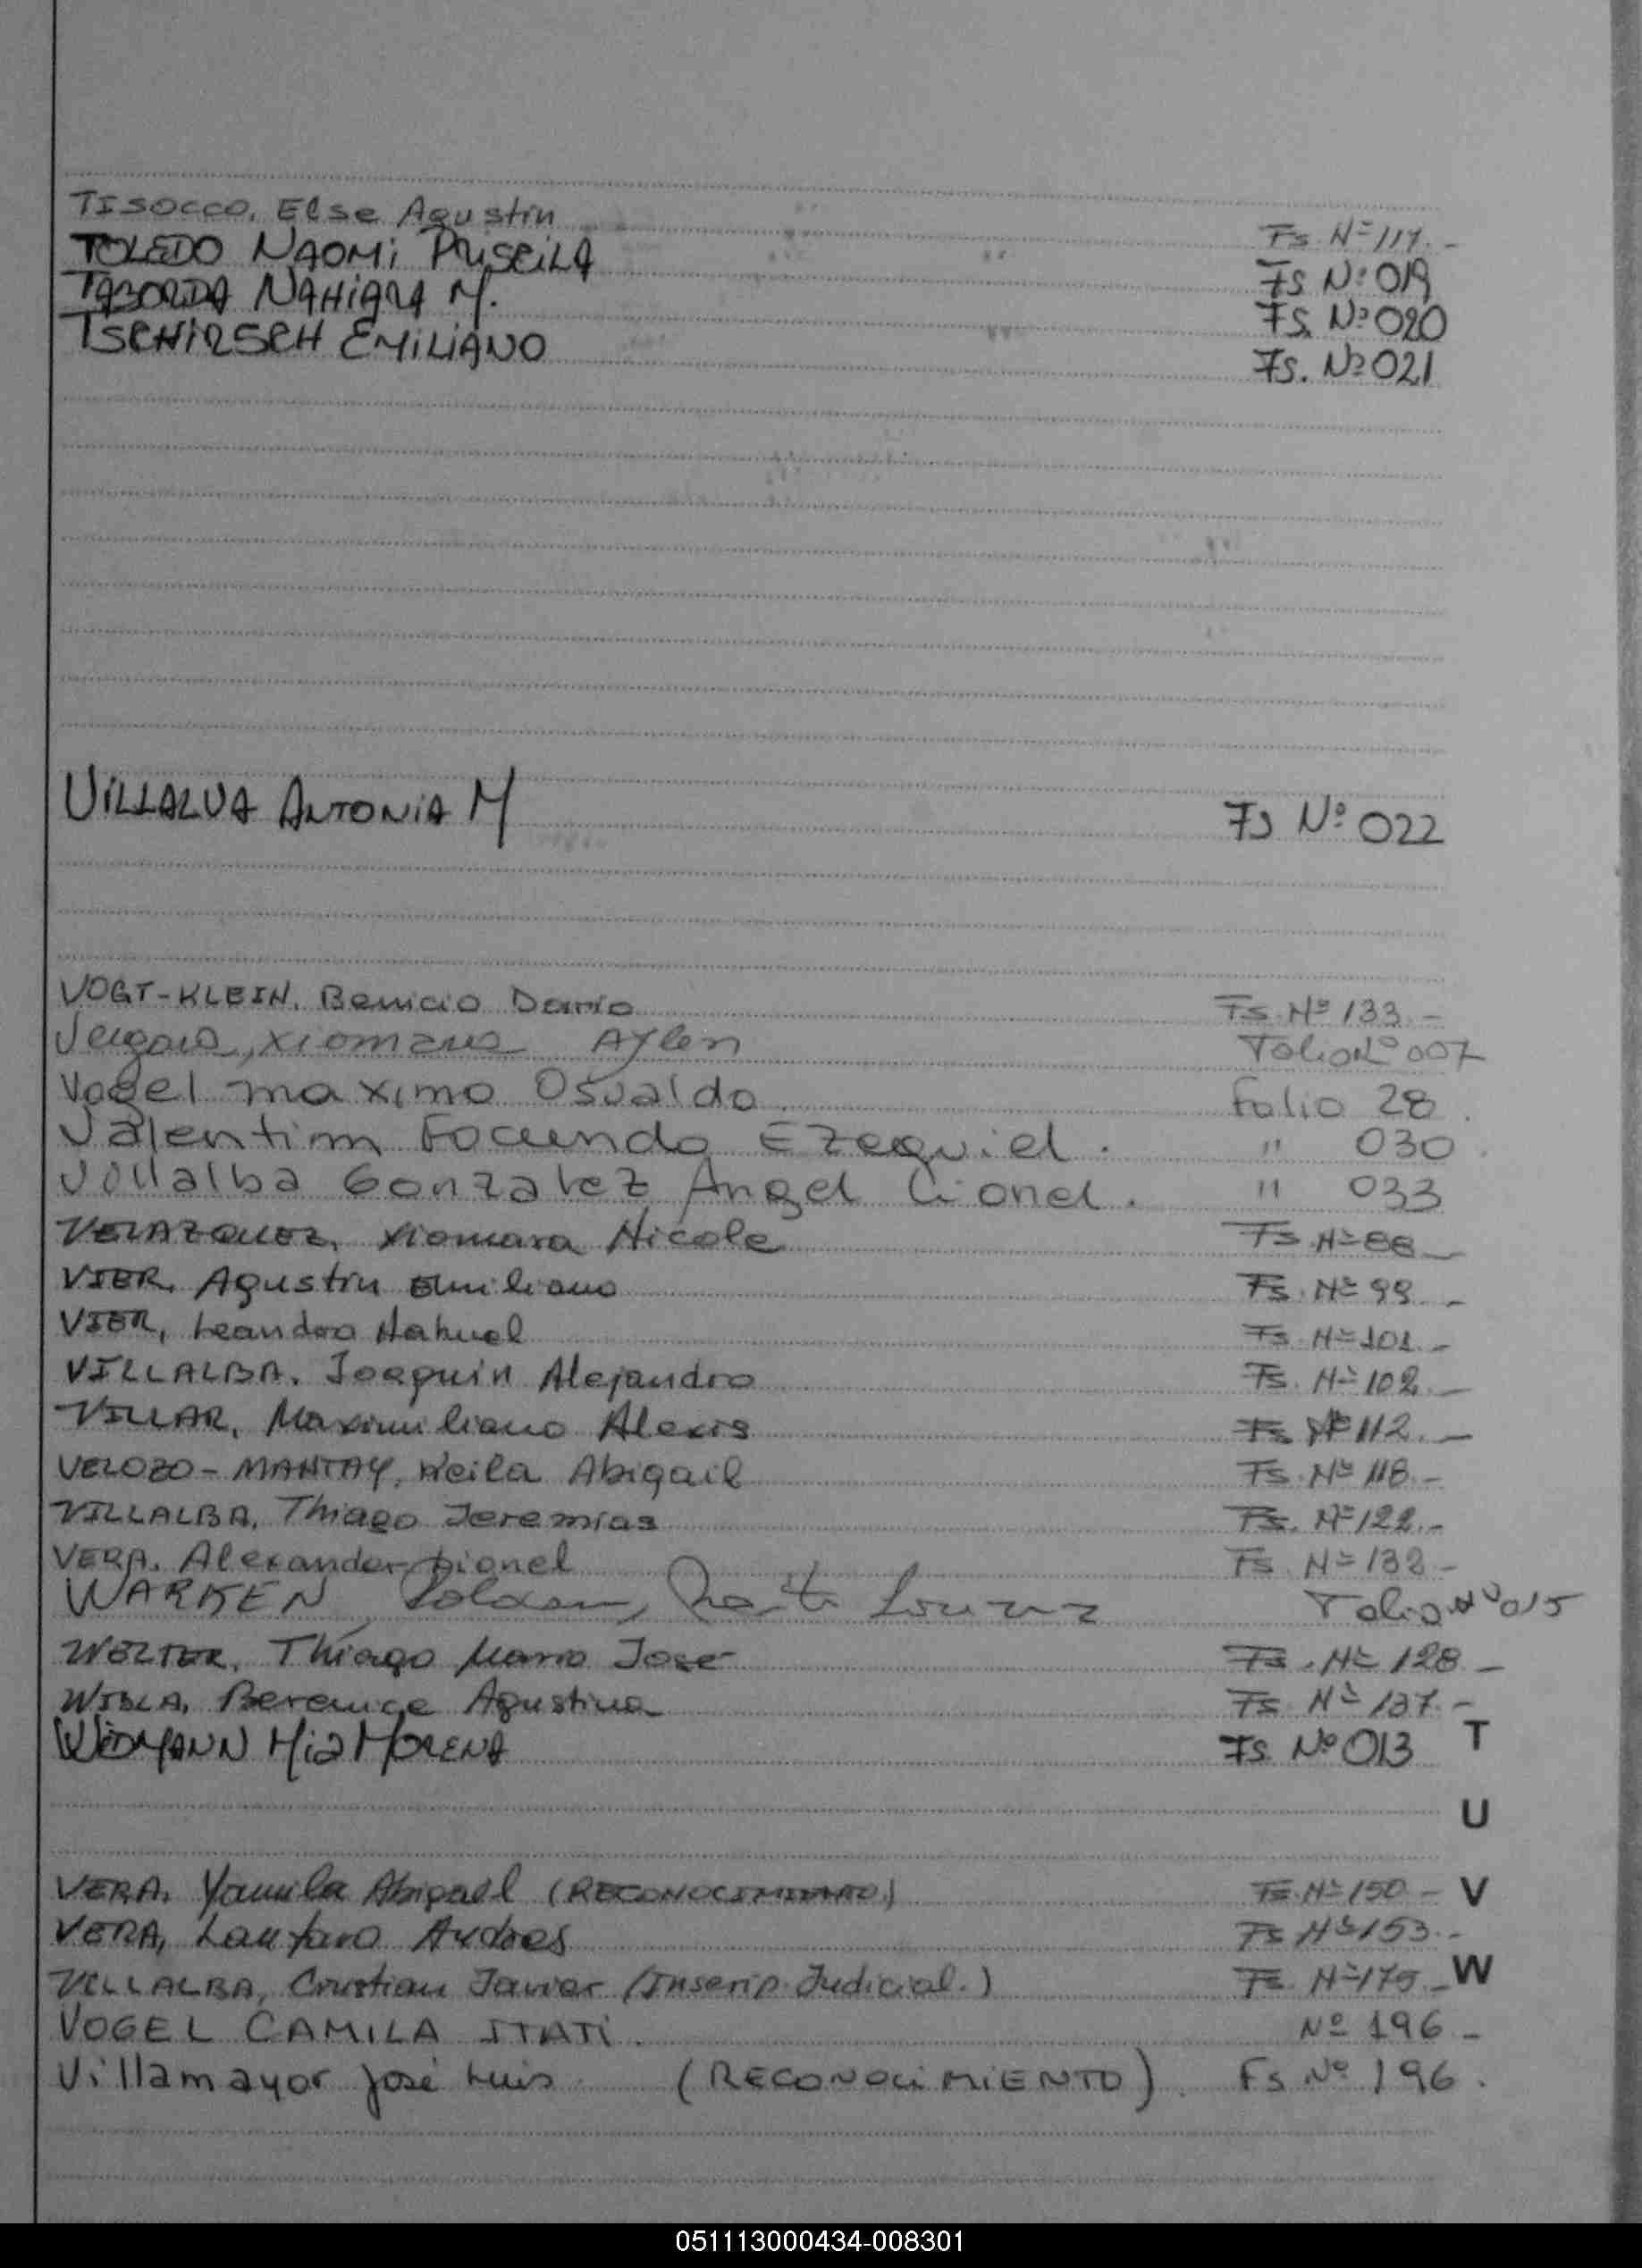 TISOCCO, Else Agustín Fs. Nº 117.-
TOLEDO NAOMI PRISCILA Fs Nº 019
TABORDA NAHIARA M. Fs. Nº 020
TSCHIRSCH EMILIANO Fs. Nº 021
VILLALVA ANTONIA M Fs Nº 022
VOGT-KLEIN, Benicio Darío Fs. Nº 133.-
Vergara, Xiomara Aylen Folio Nº 007
Vogel maximo Osvaldo Folio 28.
Valentim Facundo Ezequiel. " 030.
Villalba Gonzalez Angel Lionel. " 033
VELAZQUEZ, Xiomara Nicole Fs. Nº 88.-
VIER, Agustín Emiliano Fs. Nº 99.-
VIER, Leandro Nahuel Fs. Nº 101.-
VILLALBA, Joaquín Alejandro Fs. Nº 102.-
VILLAR, Maximiliano Alexis Fs Nº 112.-
VELOZO-MANTAY, Keila Abigail Fs. Nº 118.-
VILLALBA, Thiago Jeremías Fs. Nº 122.-
VERA, Alexander Lionel Fs. Nº 132-
WARKEN Folio Nº 015
WELTER, Thiago Mario José Fs. Nº 128.-
WISLA, Berenice Agustina Fs Nº 137.-
WIDMANN Mia MORENA Fs. Nº 013 T
U
VERA, Yamila Abigael (RECONOCIMIENTO) Fs. Nº 150.- V
VERA, Lautaro Andres Fs Nº 153.-
VILLALBA, Cristian Javier (Inscrip. Judicial.) Fs. Nº 175.- W
VOGEL CAMILA ITATI. Nº 196-
Villamayor José Luis (RECONOCIMIENTO). Fs Nº 196.
051113000434-008301